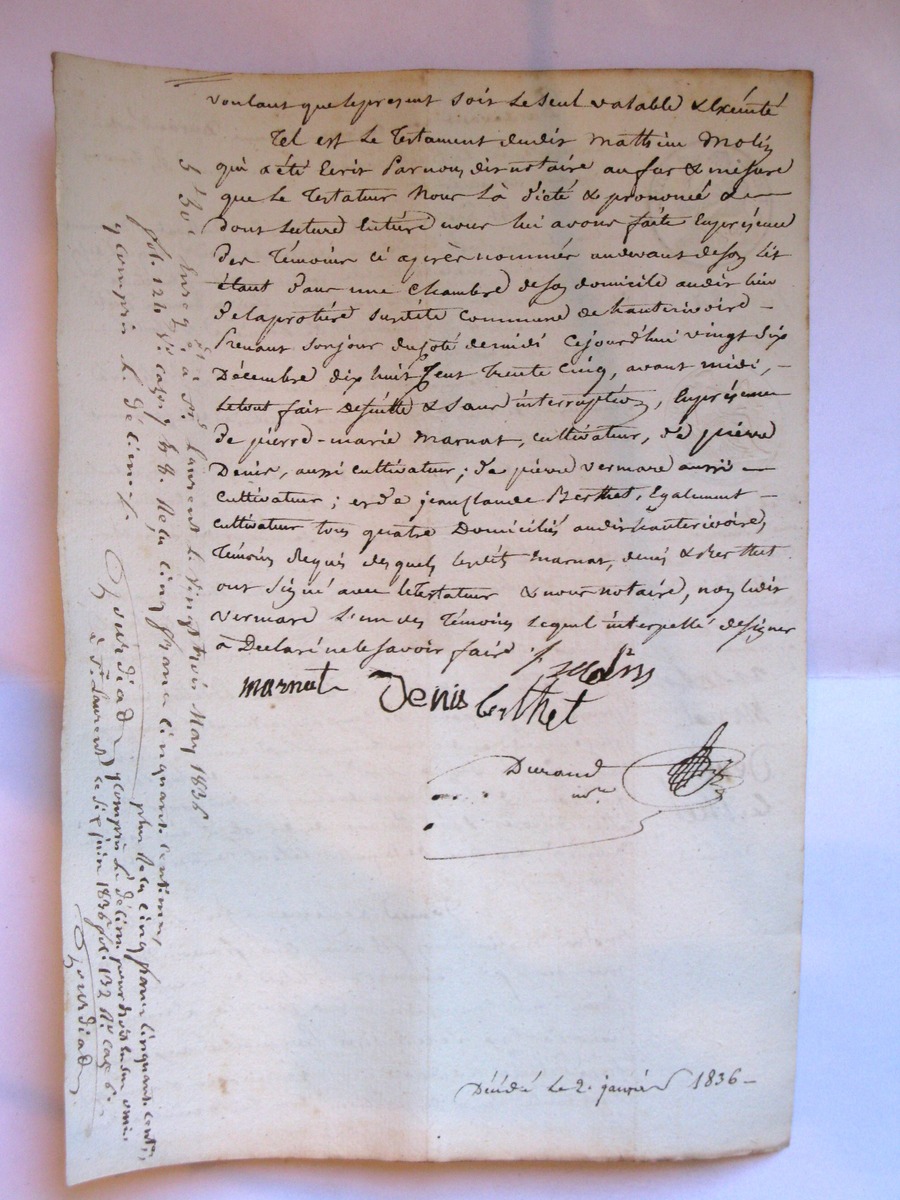 voulant que le present soit le seul valable & Exécuté
Tel est le Testament dudit Mathieu Molin
qui a été Ecrit Par nous dit notaire au fur & mesure
que le Testateur Nous l'à dicté & prononcé &
Dont lecture Entiére nous lui avons faite En présence
Des Témoins ci après nommés au devant de son lit
étant dans une chambre de son domicile au dit lieu
De la protére susdite commune de hauterivoire
Prenant son jour du coté de midi Cejourd'hui vingt six
Décembre dix huit Cent trente Cinq, avant midi,
le tout fait de suitte & sans interruption, En présence
De pierre-marie marnat, cultivateur, de pierre
Denis, aussi cultivateur; de pierre vermare aussi
Cultivateur; et de jean claude Berthet, Egalement
Cultivateur tous quatre Domiciliés au dit hauterivoire,
Témoins Requis desquels lesdits marnat, denis & berthet
ont signé avec le Testateur & nous notaire, non ledit
vermare l'un des Témoins lequel interpellé de signer
à Déclaré ne le savoir faire ./.
molin
marnat Denis berthet
Durand
nore
Décédé le 2. janvier 1836
Enreg.é à St Laurent le vingt trois May 1836
fol. 124 Vo cazes Reçu cinq francs cinquante centimes
y compris le décime.
Gourdiad
plus Reçu cinq francs cinquante centes
y compris le décime pour
à St. Laurent ce six juin 1836 fol. 132 Ro caze 6.
Gourdiad